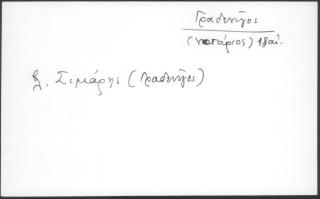 Γραδενῖγος
(νοτάριος) 18 αἰ.
βλ. Σιμάρης (Γραδενῖγος)